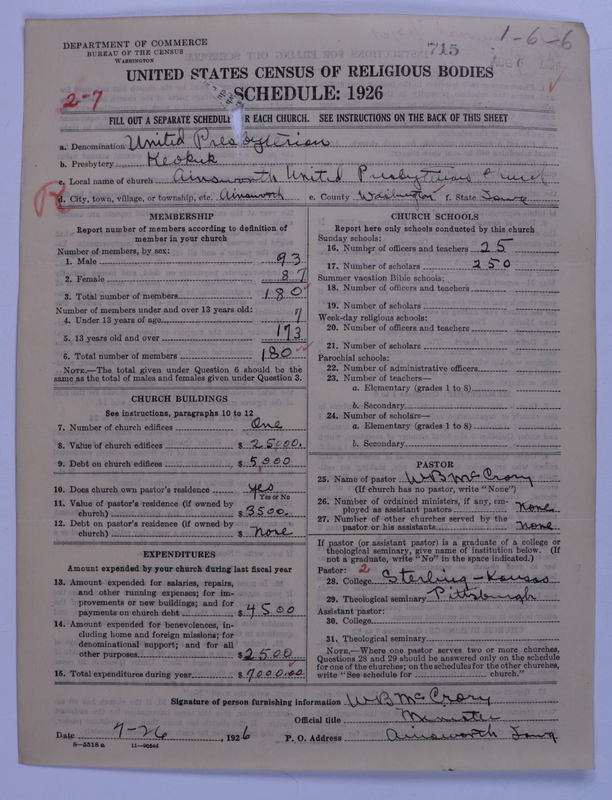 DEPARTMENT OF COMMERCE
BUREAU OF THE CENSUS
WASHINGTON
715
1-6-26
UNITED STATES CENSUS OF RELIGIOUS BODIES
SCHEDULE: 1926
2-7
FILL OUT A SEPARATE SCHEDULE FOR EACH CHURCH. SEE INSTRUCTIONS ON THE BACK OF THIS SHEET
a. Denomination United Presbyterian
b. Presbytery Keokuk
c. Local name of church Ainsworth United Presbyterian Church
R
d. City, town, village, or township, etc. Ainsworth e. County Washington f. State Iowa
MEMBERSHIP
Report number of members according to definition of
member in your church
Number of members, by sex:
1. Male 93
2. Female 87
3. Total number of members 180
Number of members under and over 13 years old:
4. Under 13 years of age 7
5. 13 years old and over 173
6. Total number of members 180
NOTE.—The total given under Question 6 should be the
same as the total of males and females given under Question 3.
CHURCH BUILDINGS
See instructions, paragraphs 10 to 12
7. Number of church edifices One
8. Value of church edifices $ 25000.
9. Debt on church edifices $ 5,000
10. Does church own pastor's residence yes
Yes or No
11. Value of pastor's residence (if owned by
church) $ 3500.
12. Debt on pastor's residence (if owned by
church) $ none
EXPENDITURES
Amount expended by your church during last fiscal year
13. Amount expended for salaries, repairs,
and other running expenses; for im-
provements or new buildings; and for
payments on church debt $ 4500
14. Amount expended for benevolences, in-
cluding home and foreign missions; for
denominational support; and for all
other purposes $ 2500
15. Total expenditures during year $ 7000.00
CHURCH SCHOOLS
Report here only schools conducted by this church
Sunday schools:
16. Number of officers and teachers 25
17. Number of scholars 250
Summer vacation Bible schools:
18. Number of officers and teachers
19. Number of scholars
Week-day religious schools:
20. Number of officers and teachers
21. Number of scholars
Parochial schools:
22. Number of administrative officers
23. Number of teachers—
a. Elementary (grades 1 to 8)
b. Secondary
24. Number of scholars—
a. Elementary (grades 1 to 8)
b. Secondary
PASTOR
25. Name of pastor W B McCrory
(If church has no pastor, write "None")
26. Number of ordained ministers, if any, em-
ployed as assistant pastors None
27. Number of other churches served by the
pastor or his assistants None
If pastor (or assistant pastor) is a graduate of a college or
theological seminary, give name of institution below. (If
not a graduate, write "No" in the space indicated.)
Pastor: 2
28. College Sterling - Kansas
29. Theological seminary Pittsburgh
Assistant pastor:
30. College
31. Theological seminary
NOTE.—Where one pastor serves two or more churches,
Questions 28 and 29 should be answered only on the schedule
for one of the churches; on the schedules for the other churches,
write "See schedule for church."
Signature of person furnishing information W B McCrory
Official title Minister
Date 7-26, 1926 P. O. Address Ainsworth Iowa
8-5318 a